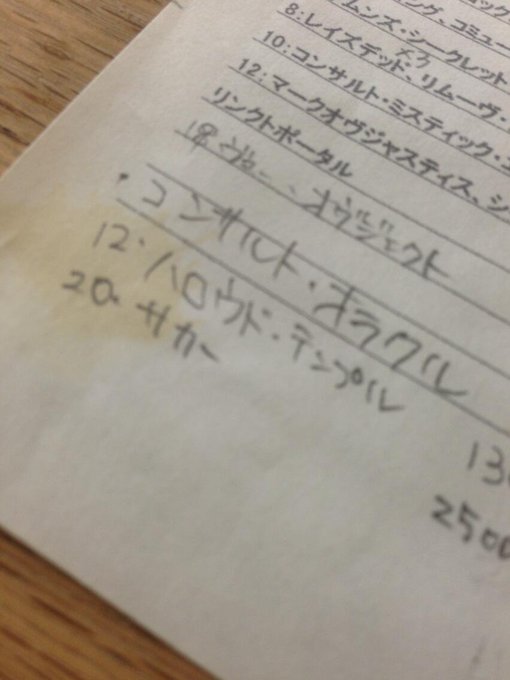 ング、コミュー
ムンズ・シークレット
8:レイズデッド、リムーヴ・
10:コンサルト・ミスティック・
12:マークオヴジャスティス、シ
リンクトポータル
オヴジェクト
・コンサルト・オラクル
12・ハロウド・テンプル
20・サカー
13
2500